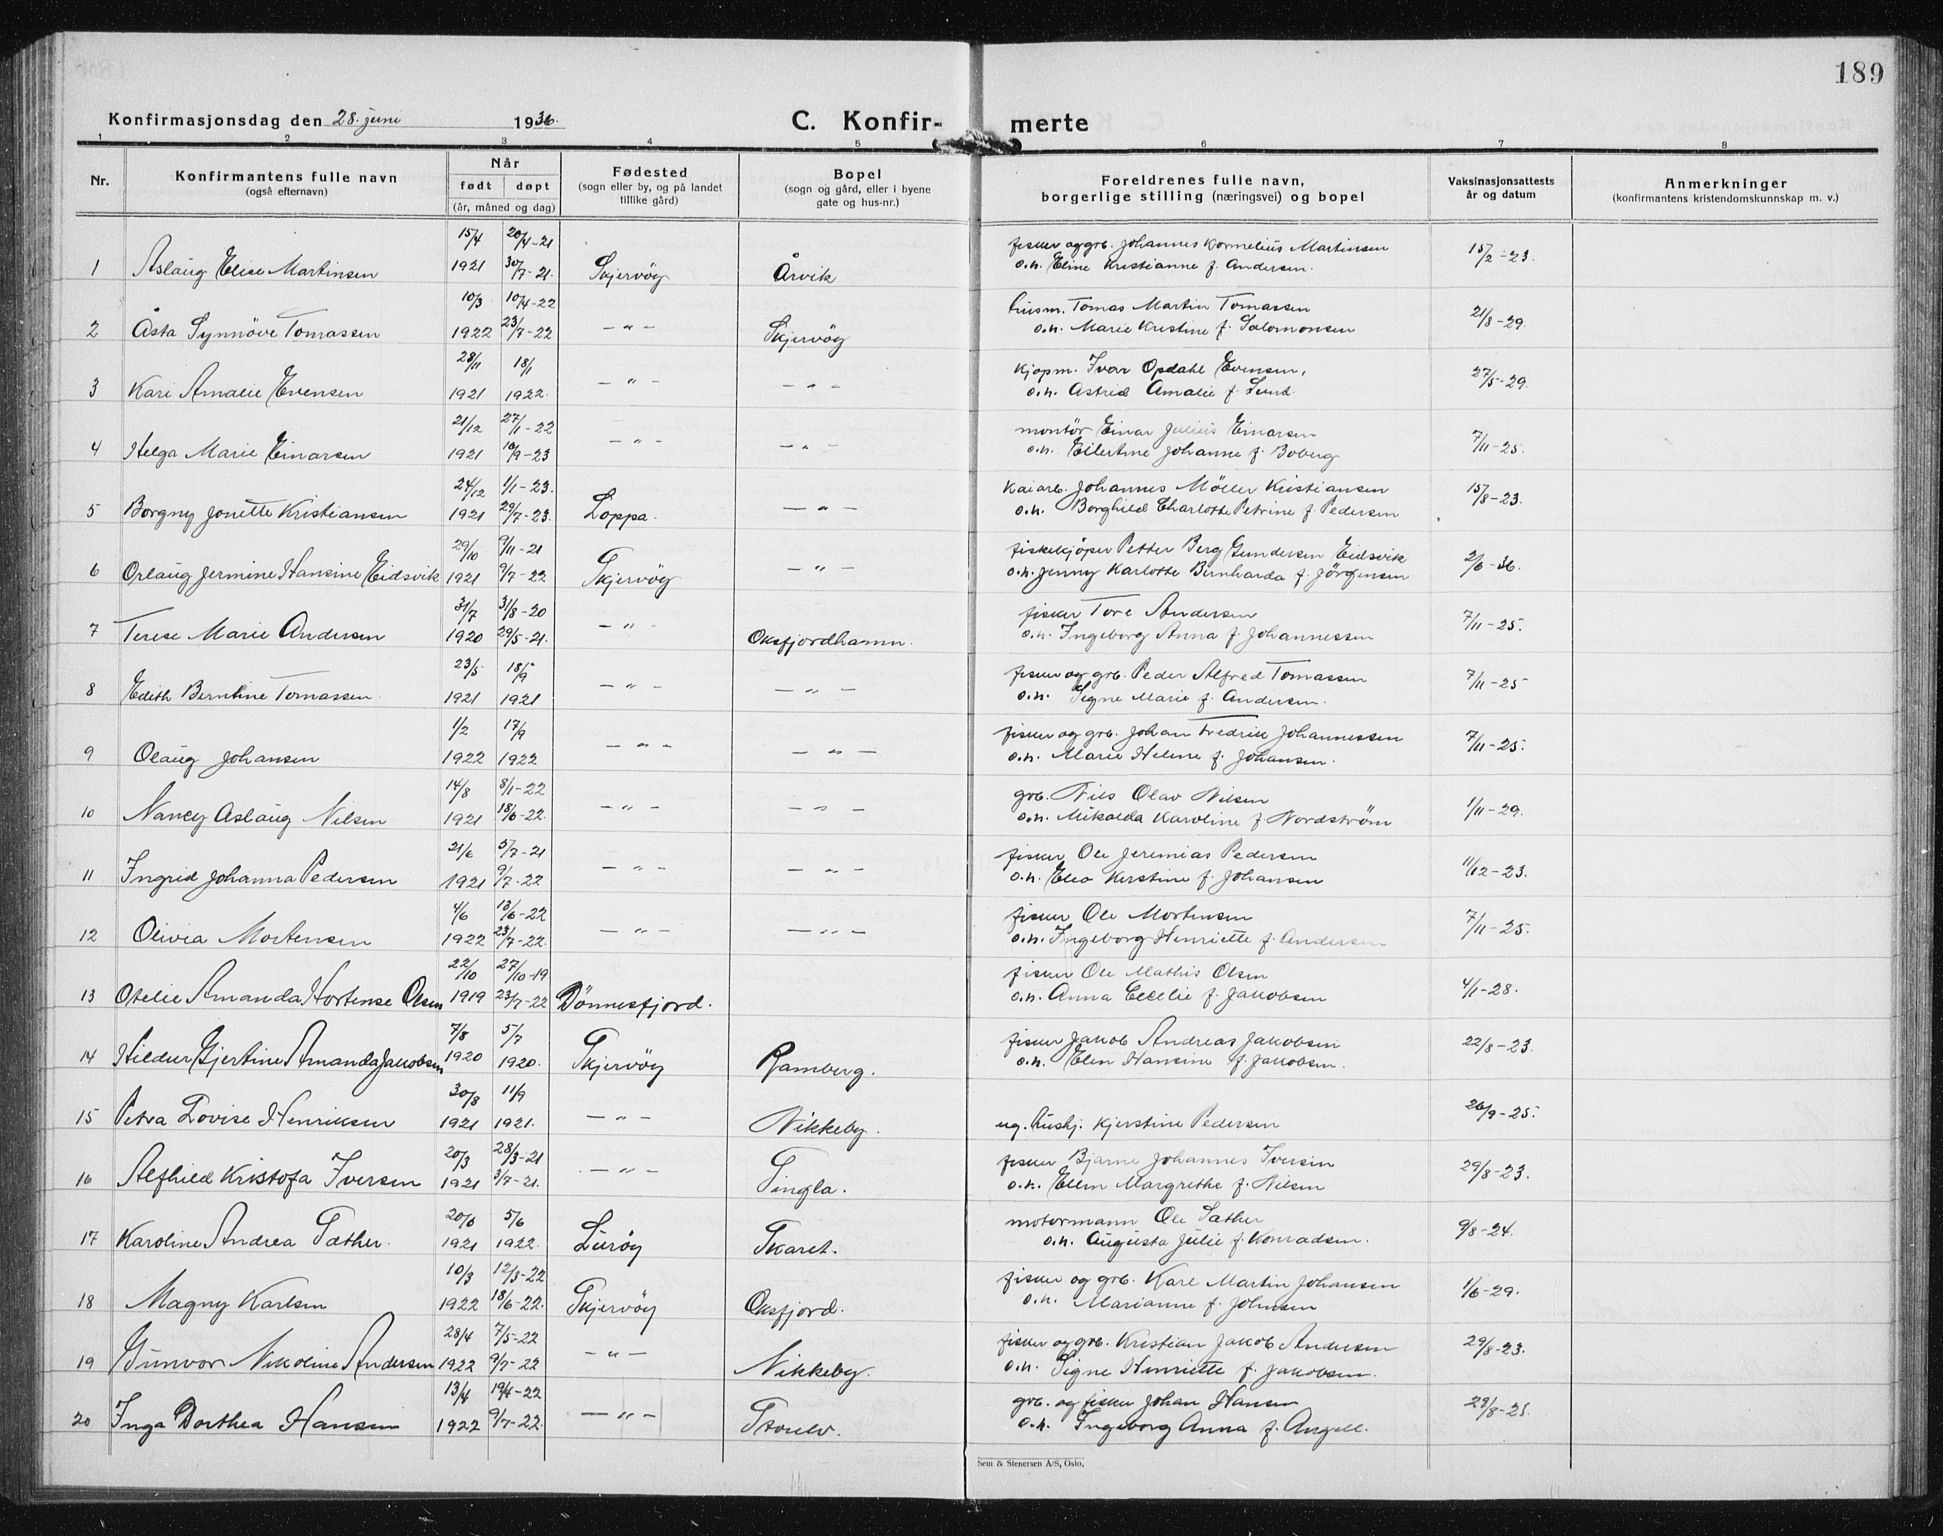 189
Konfirmasjonsdag den 28. juni 1936.
C. Konfir- merte
1 2 3 4 5 6 7 8
Nr.
Konfirmantens fulle navn
(også efternavn)
Når
født døpt
(år, måned og dag)
Fødested
(sogn eller by, og på landet
tillike gård)
Bopel
(sogn og gård, eller i byene
gate og hus-nr.)
Foreldrenes fulle navn,
borgerlige stilling (næringsvei) og bopel
Vaksinasjonsattests
år og datum
Anmerkninger
(konfirmantens kristendomskunnskap m. v.)
15/4 20/4-21 fisker og grb. Johannes Kornelius Martinsen 15/2-23.
1 Aslaug Elise Martinsen 1921 30/7-21. Skjervöy Årvik o.h. Eline Kristianne f. Andersen.
10/3 10/4-22 husm. Tomas Martin Tomassen 21/8-29.
2 Åsta Synnöve Tomassen 1922 23/7-22 -"- Skjervöy o.h. Marie Kristine f. Salomonsen
28/11 18/1 kjøpm. Ivar Opdahl Evensen, 27/5-29.
3 Kari Amalie Evensen 1921 1922. -"- -"- o.h. Astrid Amalie f. Lund.
21/12 27/1-22 montör Einar Julius Einarsen 7/11-25.
4 Helga Marie Einarsen 1921 16/9-23 -"- -"- o.h. Eilertine Johanne f. Boberg
24/12 1/1-23. Kaiarb. Johannes Möller Kristiansen 15/8-23.
5 Borgny Jonette Kristiansen 1921 29/7-23. Loppa. -"- o.h. Borghild Charlotte Petrine f. Pedersen
29/10 9/11-21 fiskekjöper Petter Berg Gundersen Eidsvik 2/6-36.
6 Orlaug Jermine Hansine Eidsvik 1921 9/7-22 Skjervöy -"- o.h. Jenny Karlotte Bernharda f. Jörgensen
31/7 31/8-20 fisker Tore Andersen 7/11-25.
7 Terese Marie Andersen 1920 29/5-21. -"- Oksfjordhamn. o.h. Ingeborg Anna f. Johannessen
23/5 18/9 fisker og grb. Peder Alfred Tomassen 7/11-25
8 Edith Berntine Tomassen. 1921 1921 -"- -"- o.h. Signe Marie f. Andersen.
1/2 17/9 fisker og grb. Johan Fredrik Johannessen 7/11-25.
9 Olaug Johansen 1922 1922 -"- -"- o.h. Marie Helene f. Johansen.
14/8 8/1-22 grb. Nils Olav Nilsen 1/11-29.
10 Nancy Aslaug Nilsen 1921 18/6-22. -"- -"- o.h. Mikalda Karoline f. Nordström
21/6 5/7-21 fisker Ole Jeremias Pedersen 11/12-23.
11 Ingrid Johanna Pedersen 1921 9/7-22 -"- -"- o.h. Elea Kirstine f. Johansen
4/6 13/6-22 fisker Ole Mortensen 7/11-25.
12 Olivia Mortensen 1922 23/7-22. -"- -"- o.h. Ingeborg Henriette f. Andersen
22/10 27/10-19 fisker Ole Mathis Olsen 4/1-28.
13 Otelie Amanda Hortense Olsen 1919 23/7-22 Dönnesfjord. o.h. Anna Cecelie f. Jakobsen
7/8 5/7 fisker Jakob Andreas Jakobsen 22/8-23.
14 Hildur Gjertine Amanda Jakobsen 1920 1920. Skjervöy Ramberg. o.h. Elen Hansine f. Jakobsen.
30/8 11/9 26/9-25.
15 Petra Lovise Henriksen 1921 1921. -"- Nikkeby. ug. hushj. Kjerstine Pedersen
20/3 28/3-21 fisker Bjarne Johannes Iversen 29/8-23.
16 Alfhild Kristofa Iversen 1921 3/7-21. -"- Singla. o.h. Ellen Margrethe f. Nilsen
20/6 5/6 motormann Ole Sæther 9/8-24.
17 Karoline Andrea Sæther. 1921 1922. Luröy Skaret. o.h. Augusta Julie f. Konradsen.
10/3 12/3-22 fisker og grb. Karl Martin Johansen 1/6-29.
18 Magny Karlsen 1922 18/6-22. Skjervöy Oksfjord. o.h. Marianne f. Johnsen
28/4 7/5-22 fisker og grb. Kristian Jakob Andersen 29/8-23.
19 Gunvor Nikoline Andersen 1922 9/7-22 -"- Nikkeby. o.h. Signe Henriette f. Jakobsen.
13/4 19/4-22 grb. og fisker Johan Hansen 29/8-25.
20 Inga Dorthea Hansen 1922 9/7-22. -"- Storelv. o.h. Ingeborg Anna f. Angell.
Sem & Stenersen A/S, Oslo.